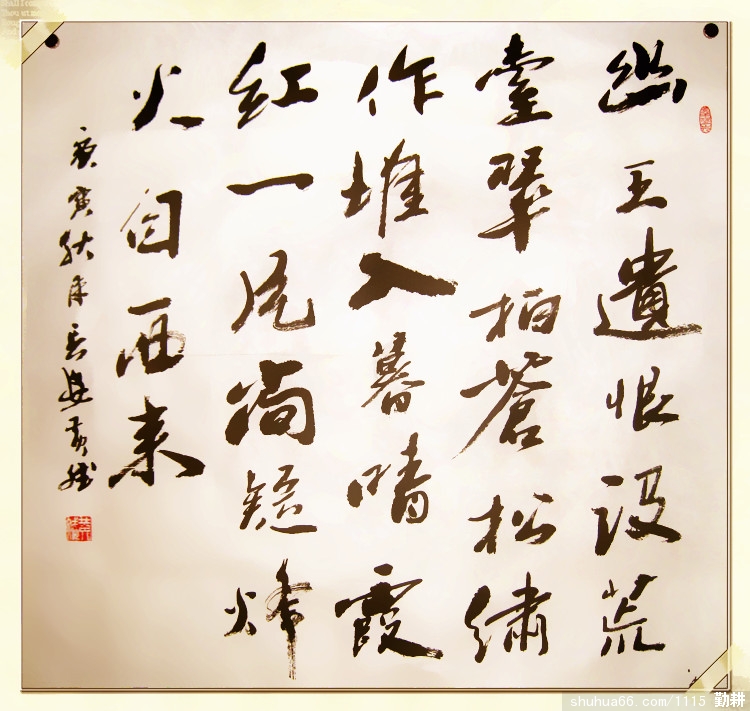 幽王遺恨没荒
臺翠柏蒼松繡
作堆入暮晴霞
紅一片尚疑烽
火自西来
庚寅秋
shuhua66.com/1115 勤耕